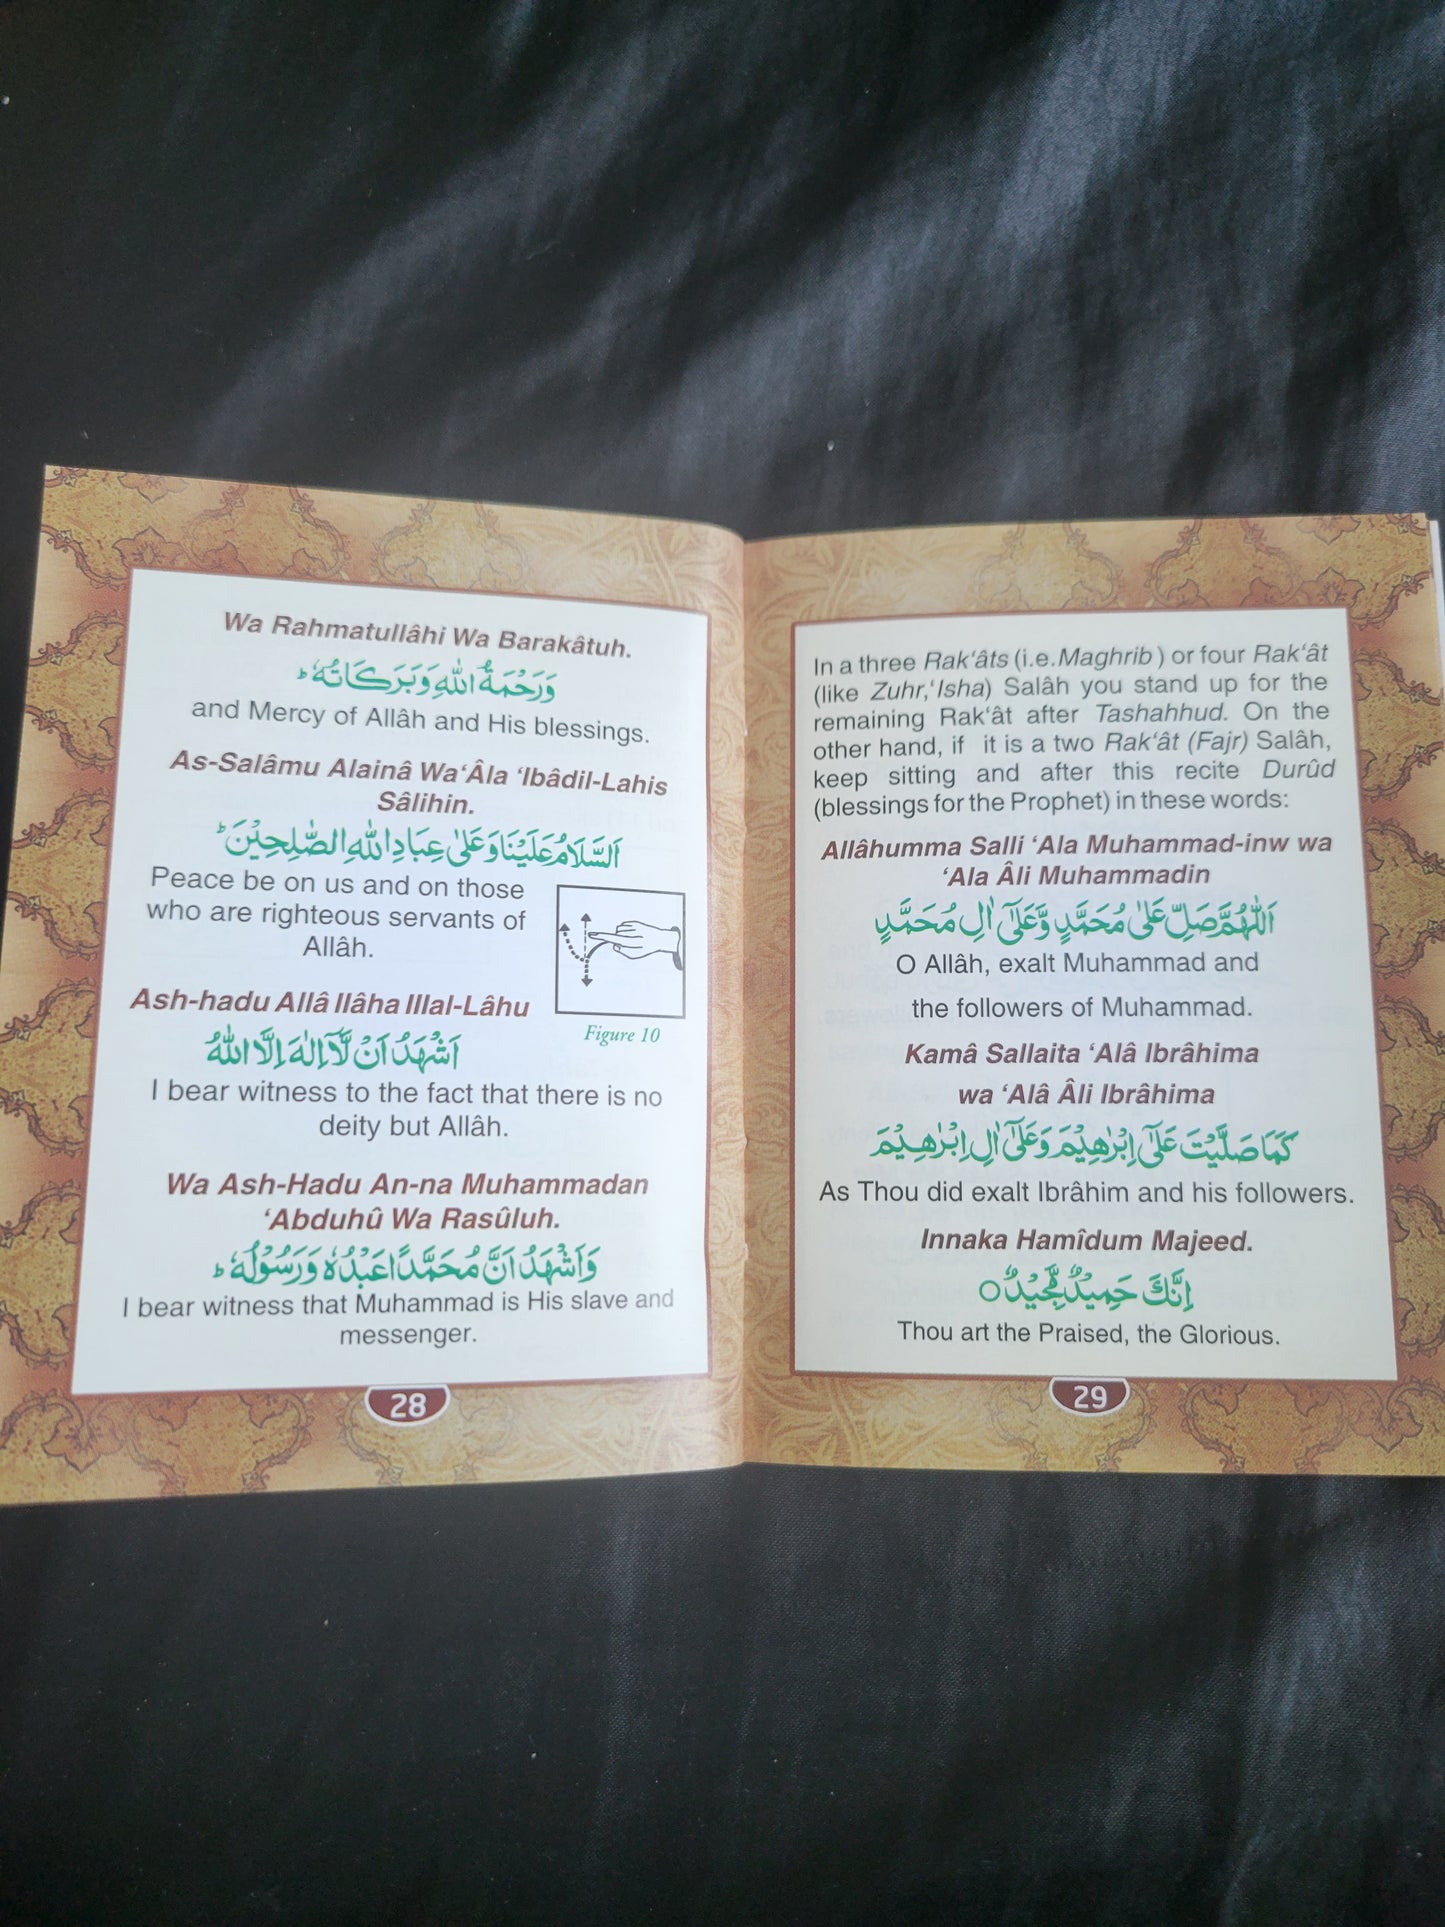 Wa Rahmatullâhi Wa Barakâtuh.
وَرَحْمَةُ اللّٰهِ وَبَرَكَاتُهٗ ؕ
and Mercy of Allâh and His blessings.
As-Salâmu Alainâ Wa‘Âla ‘Ibâdil-Lahis
Sâlihin.
اَلسَّلَامُ عَلَيْنَا وَعَلٰى عِبَادِ اللّٰهِ الصّٰلِحِيْنَ ؕ
Peace be on us and on those
who are righteous servants of
Allâh.
Ash-hadu Allâ Ilâha Illal-Lâhu
اَشْهَدُ اَنْ لَّآ اِلٰهَ اِلَّا اللّٰهُ
Figure 10
I bear witness to the fact that there is no
deity but Allâh.
Wa Ash-Hadu An-na Muhammadan
‘Abduhû Wa Rasûluh.
وَاَشْهَدُ اَنَّ مُحَمَّدًا عَبْدُهٗ وَرَسُوْلُهٗ ؕ
I bear witness that Muhammad is His slave and
messenger.
28
In a three Rak‘âts (i.e. Maghrib ) or four Rak‘ât
(like Zuhr,‘Isha) Salâh you stand up for the
remaining Rak‘ât after Tashahhud. On the
other hand, if it is a two Rak‘ât (Fajr) Salâh,
keep sitting and after this recite Durûd
(blessings for the Prophet) in these words:
Allâhumma Salli ‘Ala Muhammad-inw wa
‘Ala Âli Muhammadin
اَللّٰهُمَّ صَلِّ عَلٰى مُحَمَّدٍ وَّعَلٰٓى اٰلِ مُحَمَّدٍ
O Allâh, exalt Muhammad and
the followers of Muhammad.
Kamâ Sallaita ‘Alâ Ibrâhima
wa ‘Alâ Âli Ibrâhima
كَمَا صَلَّيْتَ عَلٰٓى اِبْرٰهِيْمَ وَعَلٰٓى اٰلِ اِبْرٰهِيْمَ
As Thou did exalt Ibrâhim and his followers.
Innaka Hamîdum Majeed.
اِنَّكَ حَمِيْدٌ مَّجِيْدٌ ○
Thou art the Praised, the Glorious.
29